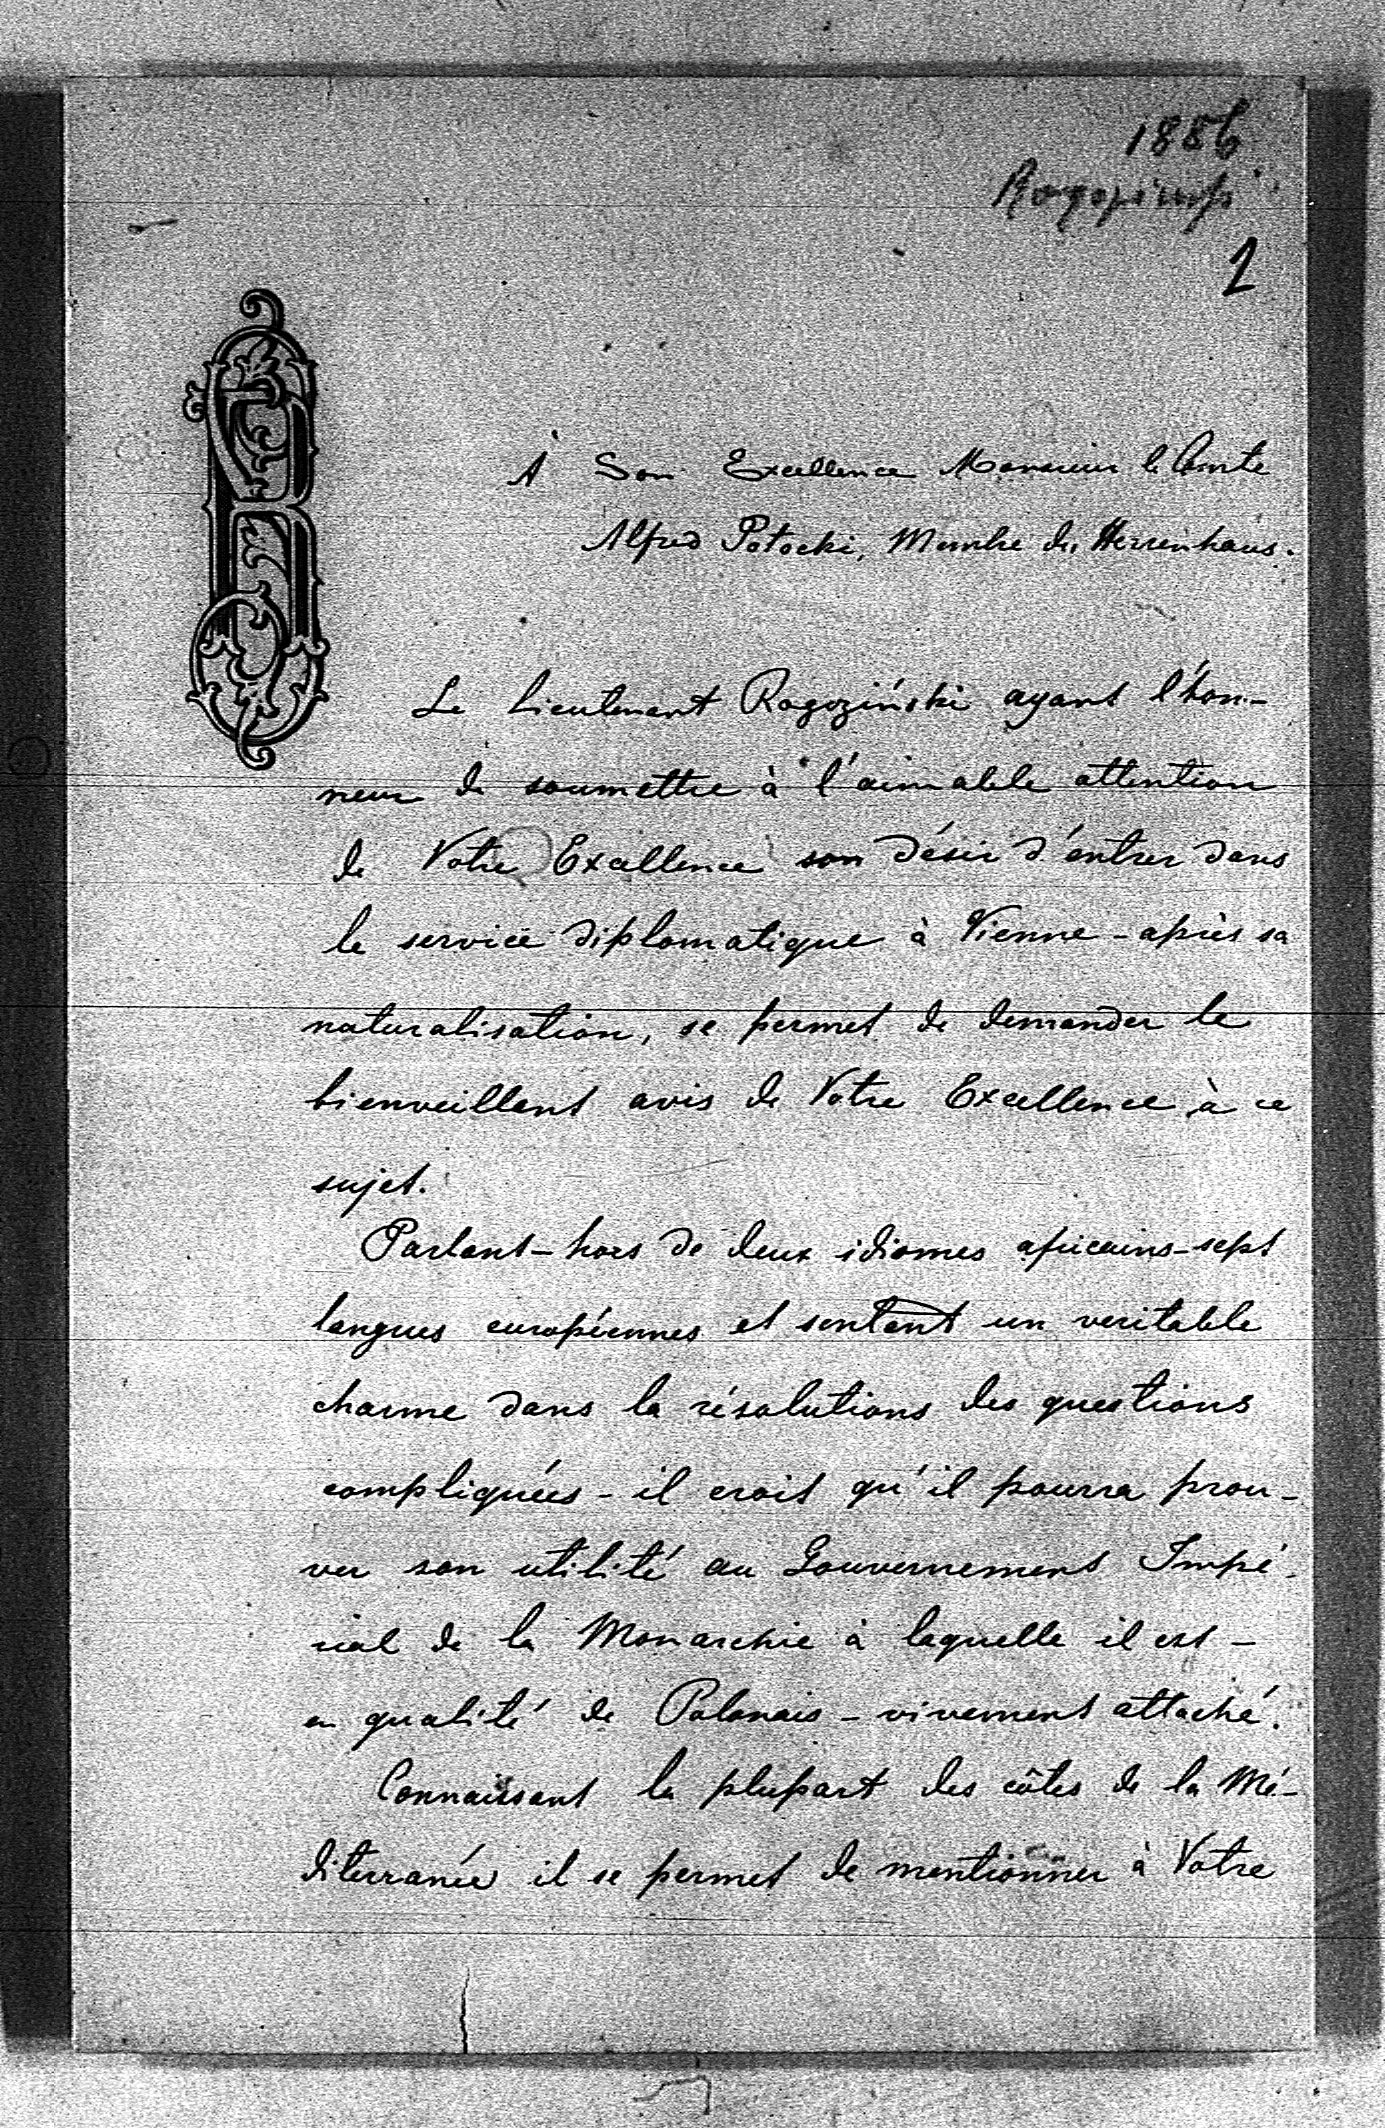 1886
Rogoziński
1
À Son Excellence Monsieur le Comte
Alfred Potocki, Membre du Herrenhaus.
Le Lieutenant Rogoziński ayant l'hon-
neur de soumettre à l'aimable attention
de Votre Excellence son désir d'entrer dans
le service diplomatique à Vienne - après sa
naturalisation, se permet de demander le
bienveillant avis de Votre Excellence à ce
sujet.
Parlant - hors de deux idiomes africains - sept
langues européennes et sentant un veritable
charme dans la résolutions des questions
compliquées - il croit qu'il pourra prou-
ver son utilité au Gouvernement Impé-
rial de la Monarchie à laquelle il est -
en qualité de Polonais - vivement attaché.
Connaissant la plupart des côtes de la Mé-
diterranée il se permet de mentionner à Votre